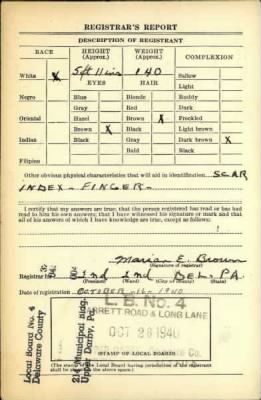 REGISTRAR'S REPORT
DESCRIPTION OF REGISTRANT
RACE HEIGHT (Approx.) WEIGHT (Approx.) COMPLEXION
White X 5 ft 11 ins 140 Sallow
EYES HAIR Light
Negro Blue Blonde Ruddy
Gray Red Dark
Oriental Hazel Brown X Freckled
Brown X Black Light brown
Indian Black Gray Dark brown X
Bald Black
Filipino
Other obvious physical characteristics that will aid in identification SCAR
INDEX - FINGER -
I certify that my answers are true; that the person registered has read or has had
read to him his own answers; that I have witnessed his signature or mark and that
all of his answers of which I have knowledge are true, except as follows:
Marian E. Brown
(Signature of registrar)
Registrar for 2nd 2nd DEL. PA.
(Precinct) (Ward) (City or county) (State)
Date of registration OCTOBER - 16 - 1940
Local Board No. 4
Delaware County
214 Municipal Bldg.
Upper Darby, Pa.
L. B. No. 4
GARRETT ROAD & LONG LANE
OCT 28 1940
STAMP OF LOCAL BOARD
(The stamp of the Local Board having jurisdiction of the
shall be placed in the above space.)